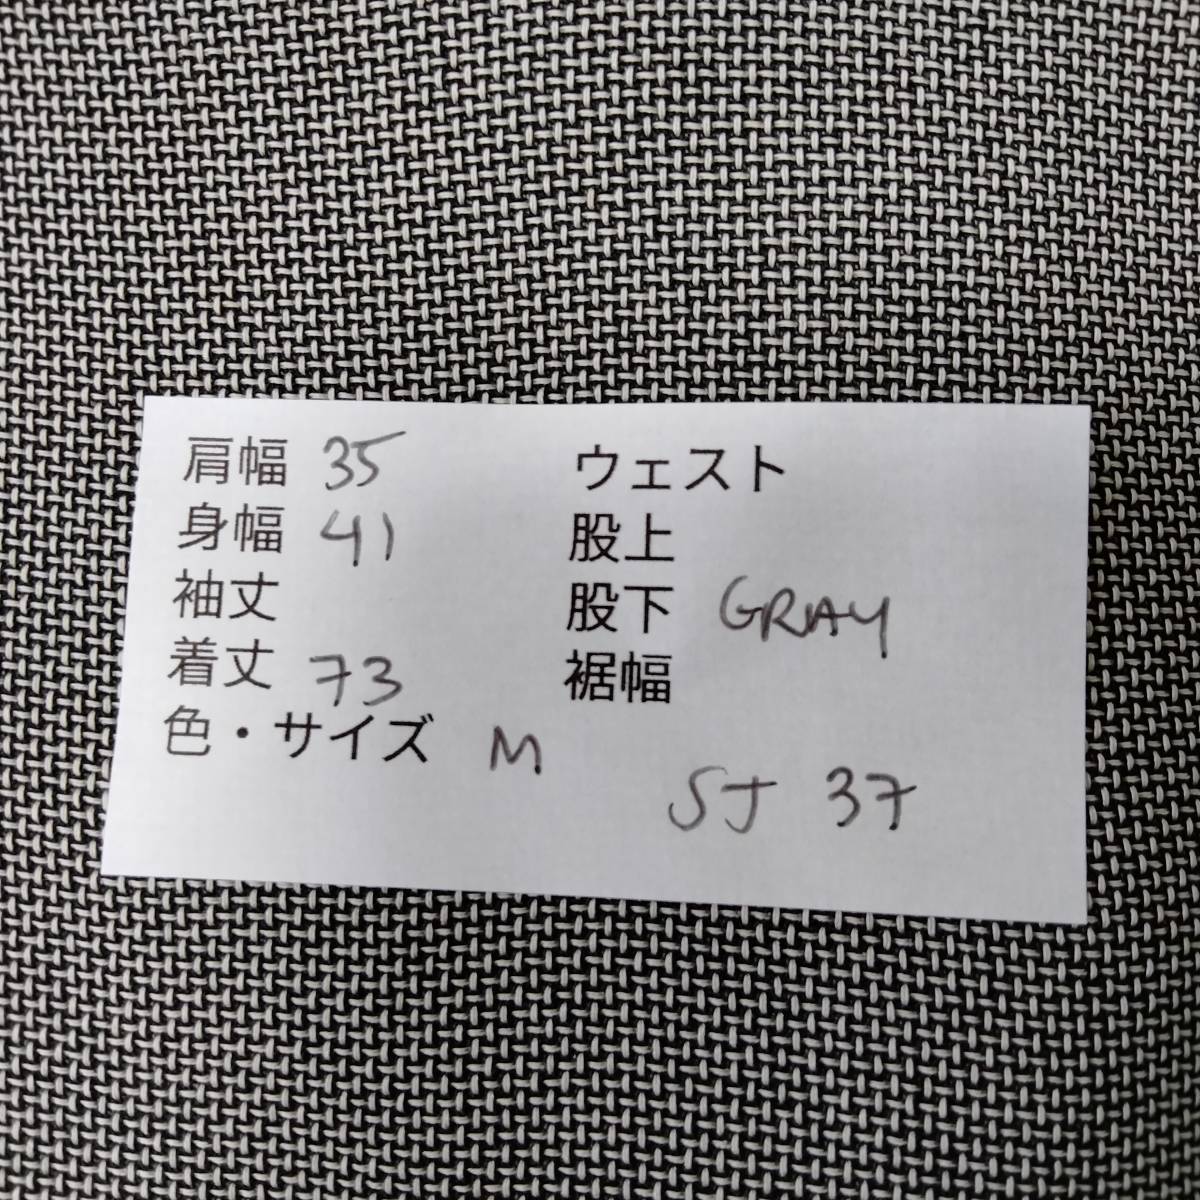 肩幅 35
身幅 41
袖丈
着丈 73
色・サイズ M
ウェスト
股上
股下 GRAY
裾幅
SJ 37